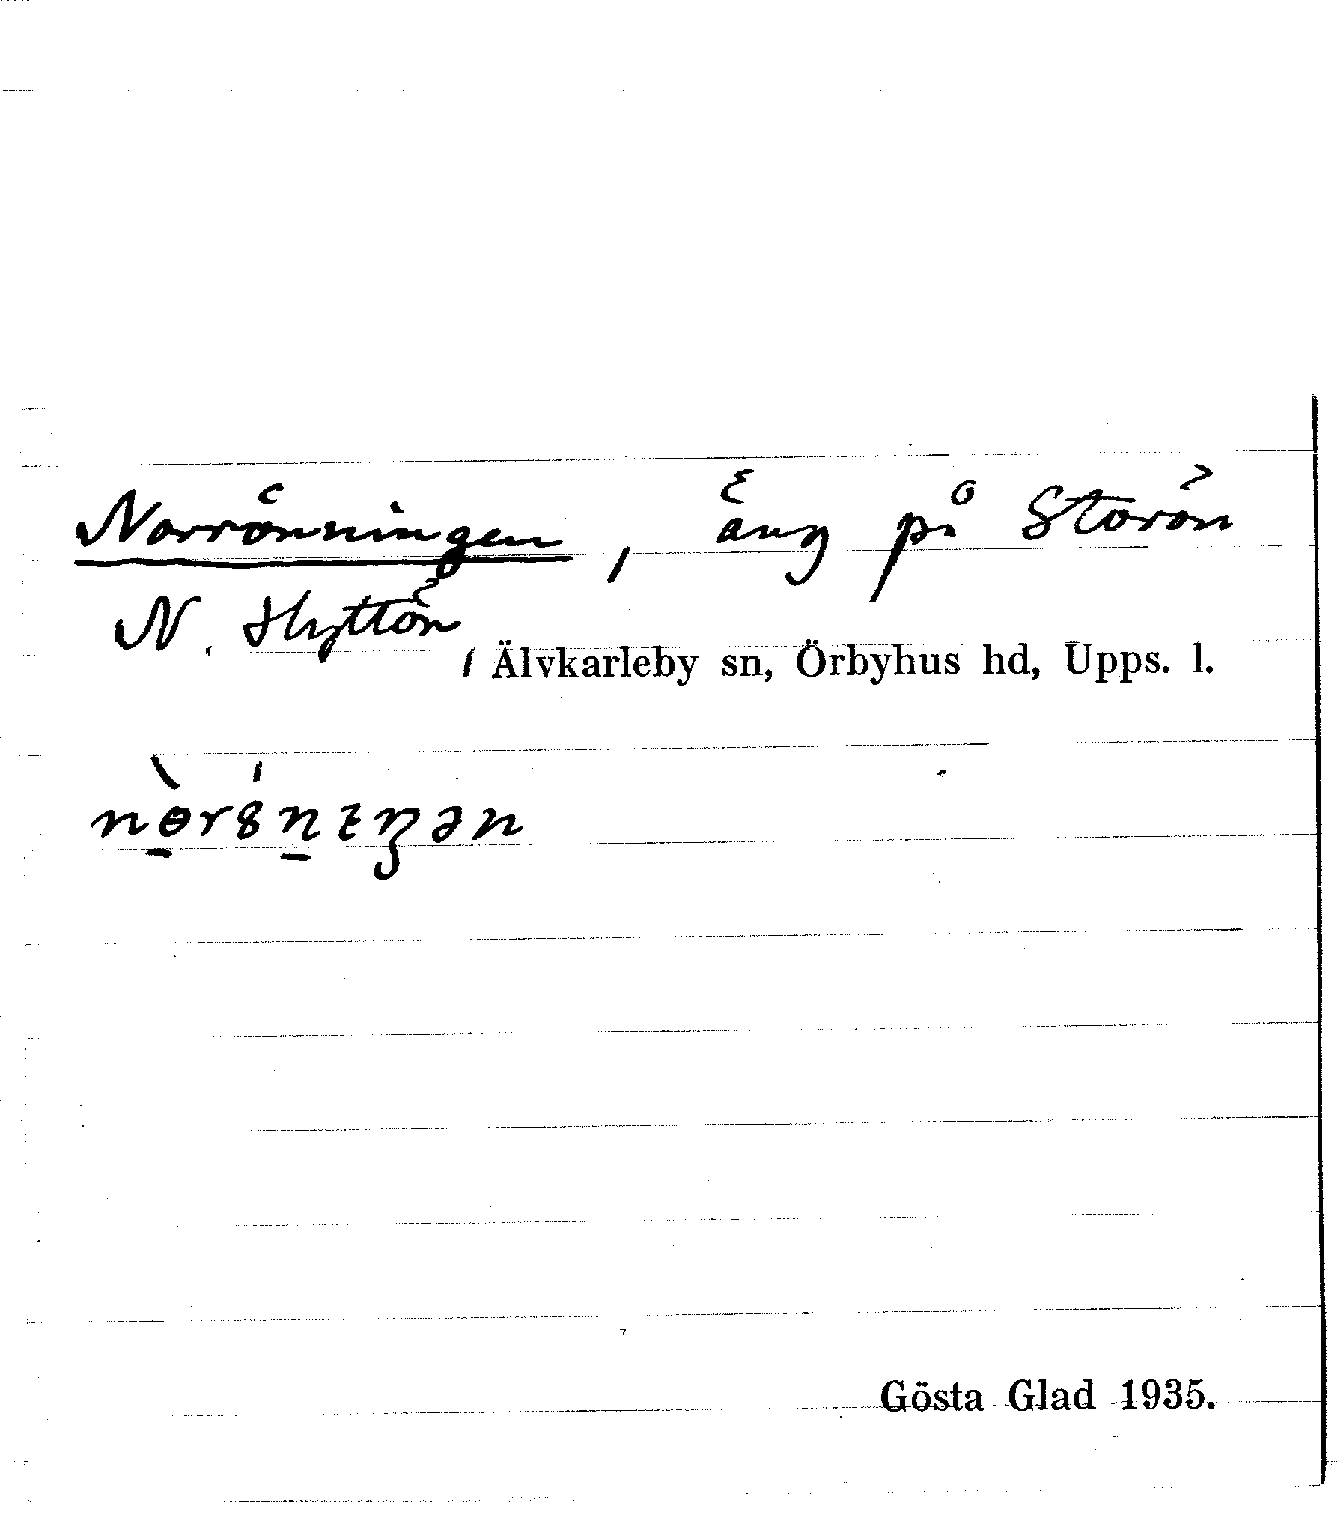 Norrönningen, äng på Storön
N. Hyttön
, Älvkarleby sn, Örbyhus hd, Upps. l.
nɵ̀rȣ́nɪŋən
Gösta Glad 1935.